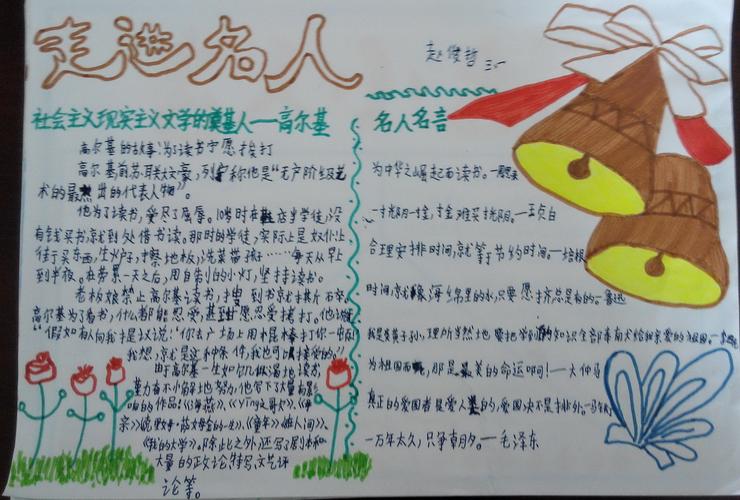 走进名人
赵俊哲 三、一
社会主义现实主义文学的奠基人——高尔基
高尔基的故事:为了读书宁愿挨打
高尔基前苏联大文豪,列宁称他是“无产阶级艺
术的最杰出的代表人物”。
他为了读书,受尽了屈辱。10岁时在鞋店当学徒,没
有钱买书,就到处借书读。那时的学徒,实际上是奴仆:上
街买东西,生火炉,擦地板,洗菜带孩子……每天从早上
到半夜。在劳累一天之后,用自制的小灯,坚持读书。
老板娘禁止高尔基读书,搜到书就撕碎。
高尔基为了看书,什么都能忍受,甚至甘愿忍受拷打。他说
“假如有人向我提议说:‘你去广场上用棍棒打你一顿’
我想,就是这种条件,我也可以接受的。”
由于高尔基一生如饥似渴地读书,
著力者不小懈地努力,他写下了大量有影
响的作品:《海燕》、《Ying之歌》、《母
《童年》《在人间》、
《我的大学》。除此之外,还写了剧本和
大量的政论,特写,文艺评
论等。
名人名言
为中华之崛起而读书。——周恩来
一寸光阴一寸金,寸金难买寸光阴。——王贞白
合理安排时间,就等于节约时间。——培根
时间,就像海绵里的水,只要愿挤总是有的。——鲁迅
我是炎黄子孙,理所当然地要把学到的知识全部奉献给我亲爱的祖国。
为祖国而死,那是最美的命运啊!——大仲马
真正的爱国者是爱人类的,爱国决不是排外。
一万年太久,只争朝夕。——毛泽东